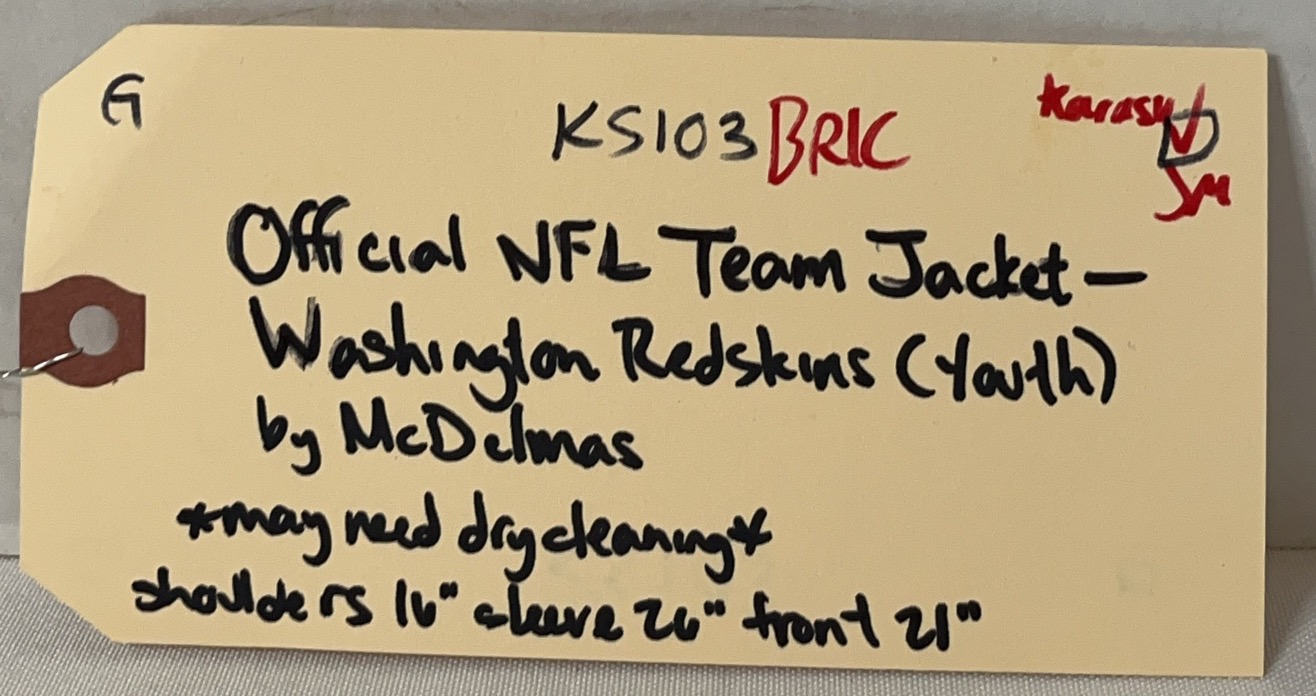 G
KS103 BRIC
Karasu
JM
Official NFL Team Jacket —
Washington Redskins (Youth)
by McDelmas
*may need dry cleaning*
shoulders 16" sleeve 26" front 21"